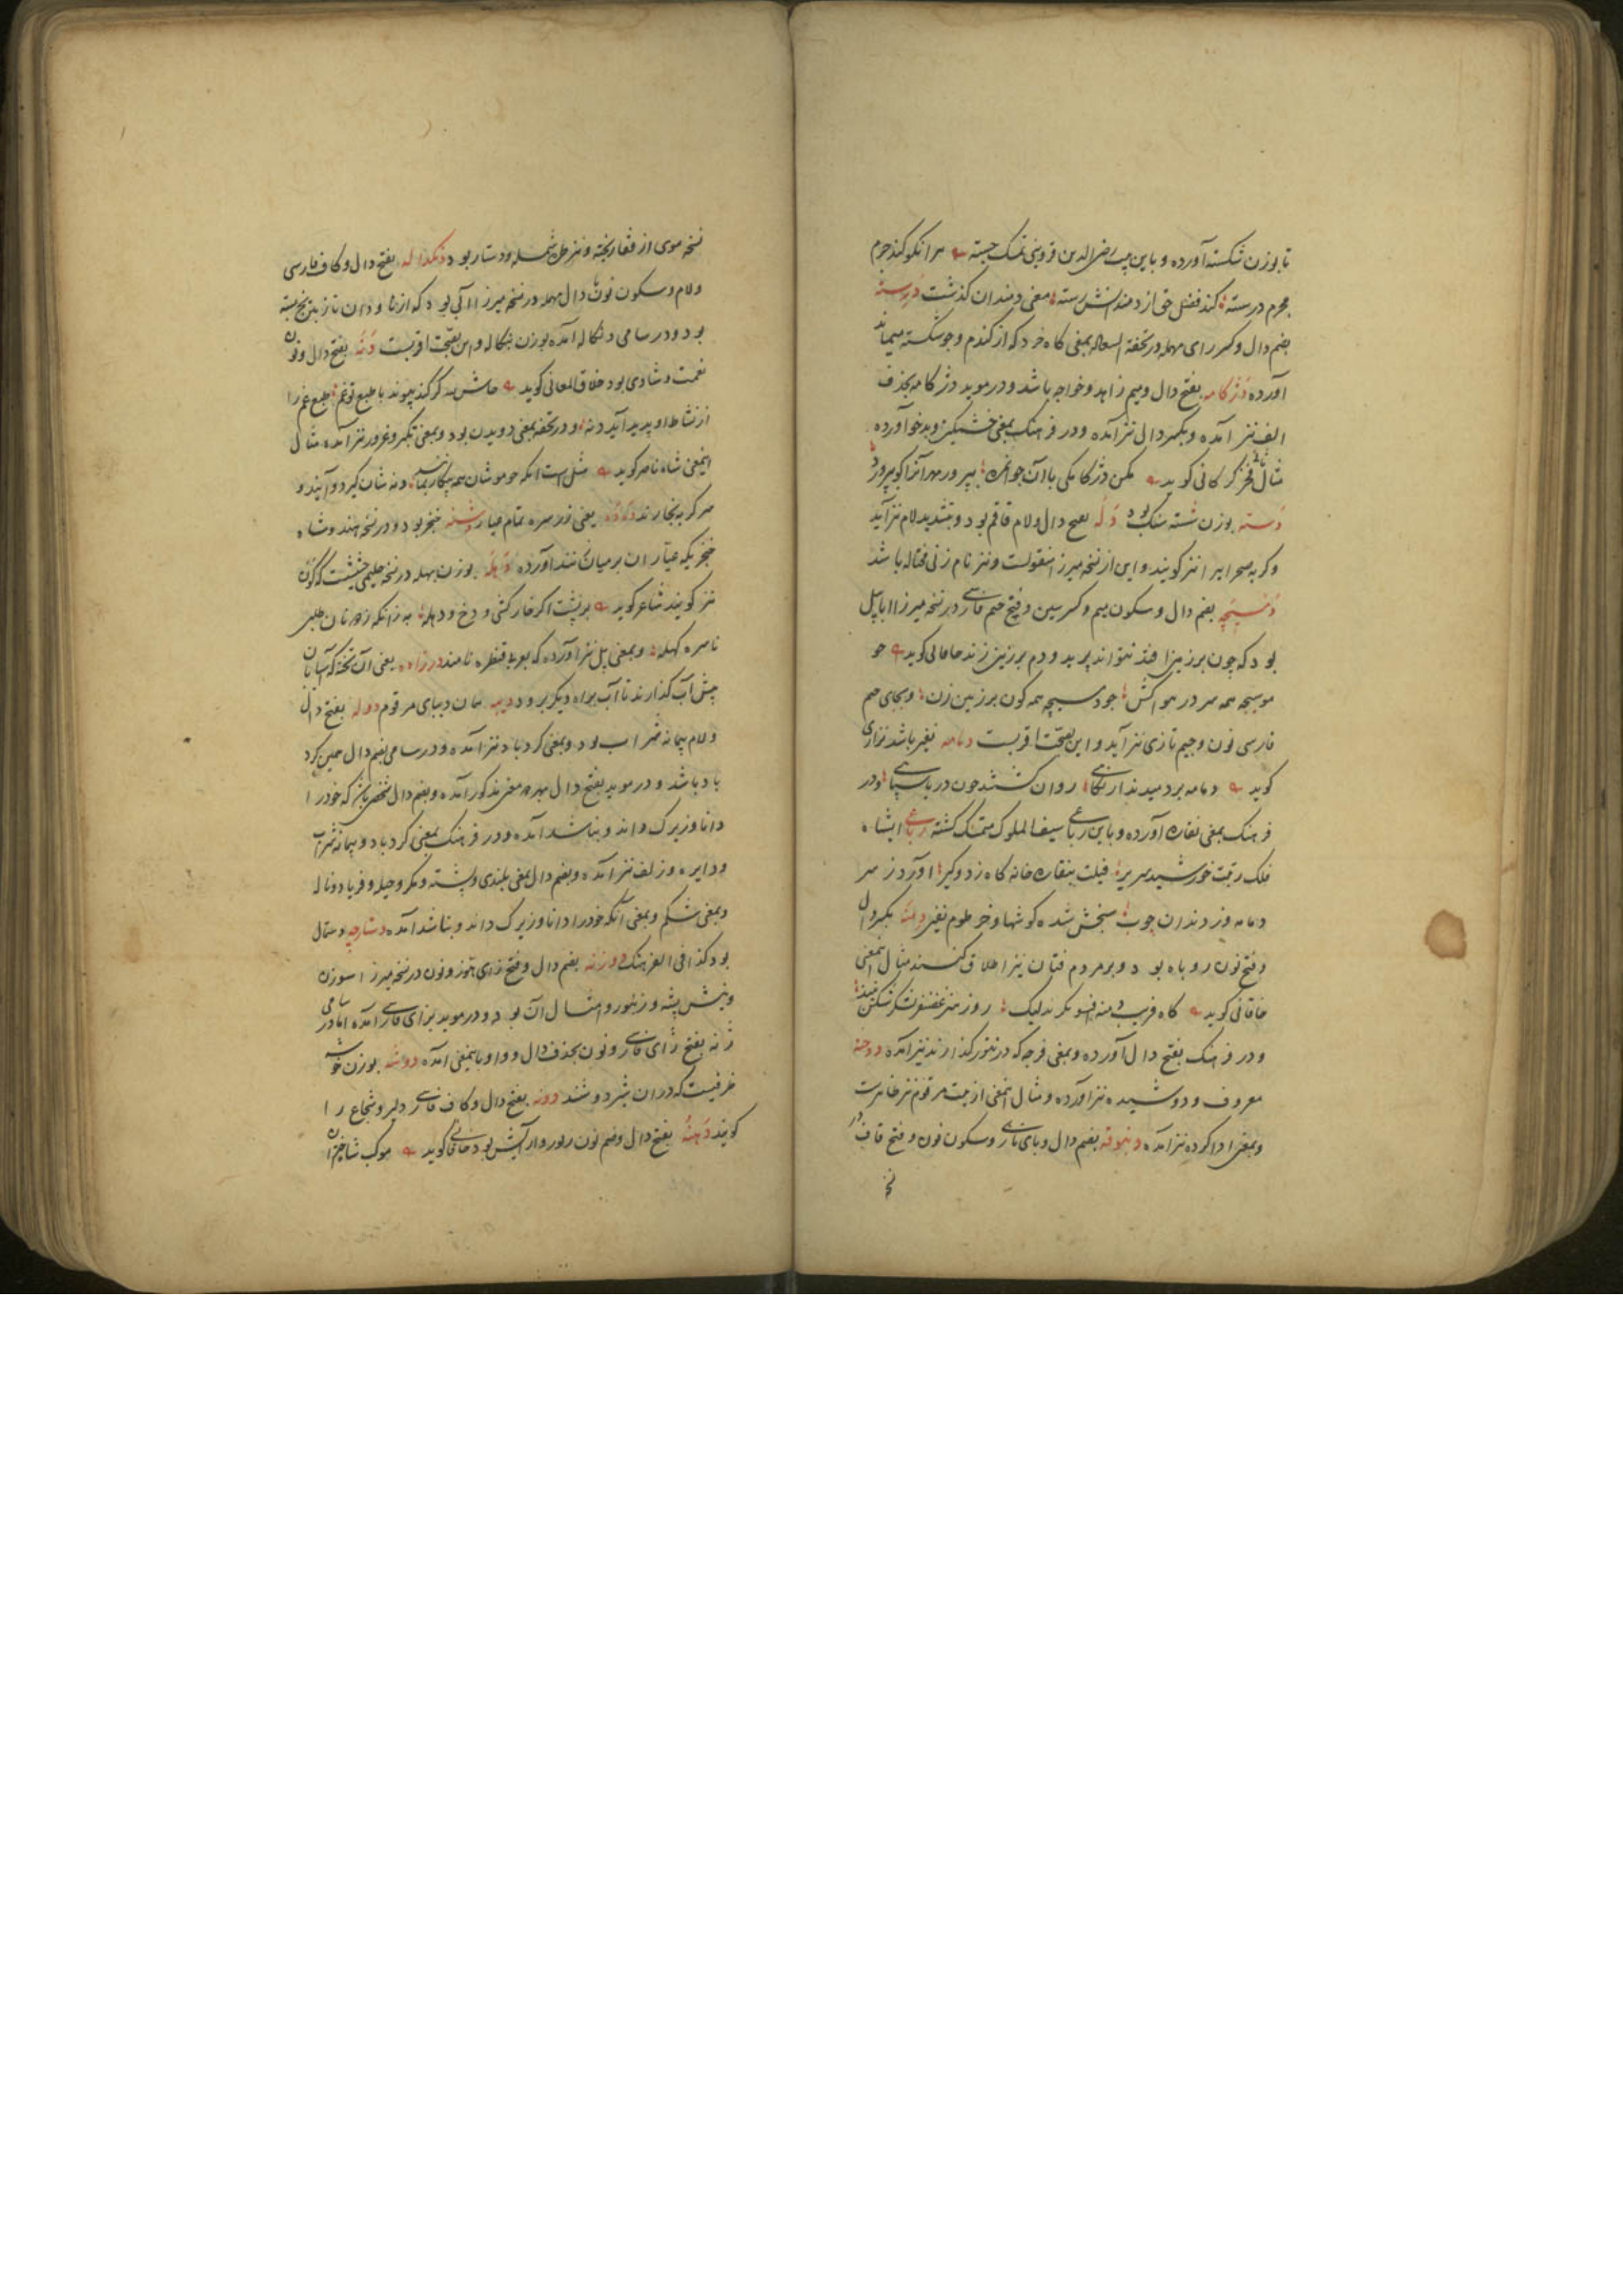 تا بوزن شکسته آورده و باین بیت رضی الدین قزوینی تمسک جسته هر آنکو کند جرم
مجرم درسته کند فضل حق از دمندانش رسته معنی دمندان گذشت درسته
بضم دال و کسر رای مهمله در تحفة السعاده بمعنی کاه خرد که از گندم و جو شکسته میماند
آورده دژکامه بفتح دال و میم زاهد و خواجه باشد و در موید دژکامه بحذف
الف نیز آمده و بکسر دال نیز آمده و در فرهنگ بمعنی خشمگین و بدخو آورده
مثال ثانی فخر گرگانی گوید مکن دژکامگی با آن جوانمرد بپرور مهر آنرا کو بپرورد
دسته بوزن شسته سنک بود دله بفتح دال و لام قاقم بود و بتشدید لام نیز آید
و گربه صحرایی را نیز گویند و این از نسخه میرزا منقولست و نیز نام زنی محتاله باشد
دمسیچه بضم دال و سکون میم و کسر سین و فتح جیم فارسی در نسخه میرزا ابابیل
بود که چون بر زمین افتد نتواند پرید و دم بر زمین زند خاقانی گوید چو
موسیجه همه سر در هوا کش چو دمسیچه همه کون بر زمین زن و بجای جیم
فارسی نون و جیم تازی نیز آید و این بصحت اقربست دمامه نفیر باشد نزاری
گوید دمامه بردمیدند از پگاهی روان گشتند چون دریا سپاهی و در
فرهنگ بمعنی نقاره آورده و باین رباعی سیف الملوک متمسک گشته رباعی ای شاه
فلک رقبت خورشید سریر فیلت بنقاره خانه گاه زد و گیر آورد ز سر
دمامه وز دندان چوب سنجش شده گوشها و خرطوم نفیر دمنه بکسر دال
و فتح نون روباه بود و بر مردم فتان نیز اطلاق کنند مثال اینمعنی
خاقانی گوید گاه فریب دمنه افسونگرند لیک روز هنر غضنفر لشکر شکن نیند
و در فرهنگ بفتح دال آورده و بمعنی فرجه که در تنور گذارند نیز آمده دوخته
معروف و دوشیده نیز آورده و مثال اینمعنی از بیت مرقوم نیز ظاهرست
و بمعنی ادا کرده نیز آمده دنبوقه بضم دال و بای تازی و سکون نون و فتح قاف در
نسخه موی از قفا ریخته و نیز طرهٔ شمله و دستار بود دنگداله بفتح دال و کاف فارسی
و لام و سکون نون ثانی دال مهمله در نسخه میرزا آبی بود که از ناودان تا زمین یخ بسته
بود و در سامی دنگاله آمده بوزن بنگاله و این بصحت اقربست دنه بفتح دال و نون
نعمت و شادی بود خلاق المعانی گوید حاش لله گر کند پیوند با طبع تو غم طبع غم را
از نشاط او پدید آید دنه و در تحفه بمعنی دویدن بود و بمعنی تکبر و غرور نیز آمده مثال
اینمعنی شاه ناصر گوید مثل است اینکه چو موشان همه بیکار بمانند دنه شان گیرد و آیند و
سر گربه بخارند ده ده یعنی زر سره تمام عیار دشنه خنجر بود و در نسخه هندوشاه
خنجریکه عیاران بر میان بندند آورده دهله بوزن بهله در نسخه حلیمی حشیشت که گون
نیز گویند شاعر گوید بر پشت اگر خار کشی و دخ و دهله به زانکه ز دونان طلبی
ناسره گهله و بمعنی پل نیز آورده که بعربی قنطره نامند درزاده یعنی آن تخته که آسیابان
پیش آب گذارند تا آب براه دیگر برود دیبه همان دیبای مرقوم دوله بفتح دال
و لام پیمانه شراب بود و بمعنی گردباد نیز آمده و در سامی بضم دال همین گرد
باد باشد و در موید بفتح دال بهر دو معنی مذکور آمده و بضم دال شخصی باشد که خود را
دانا و زیرک داند و نباشد آمده و در فرهنگ بمعنی گردباد و پیمانه شراب
و دایره و زلف نیز آمده و بضم دال بمعنی بلندی و پشته و مکر و حیله و فریاد و ناله
و بمعنی شکم و بمعنی آنکه خود را دانا و زیرک داند و نباشد آمده دستارچه دستمال
بود کذا فی الفرهنگ دوزنه بضم دال و فتح زای هوز و نون در نسخه میرزا سوزن
و نیش پشه و زنبور و امثال آن بود و در موید بزای فارسی آمده اما در سامی
ژنه بفتح زای فارسی و نون بحذف دال و واو باینمعنی آمده دوشه بوزن خوشه
ظرفیست که در آن شیر دوشند دونه بفتح دال و کاف فارسی دلیر و شجاع را
گویند دهنه بفتح دال و ضم نون زیور و آرایش بود خاقانی گوید موکب شاه اختران